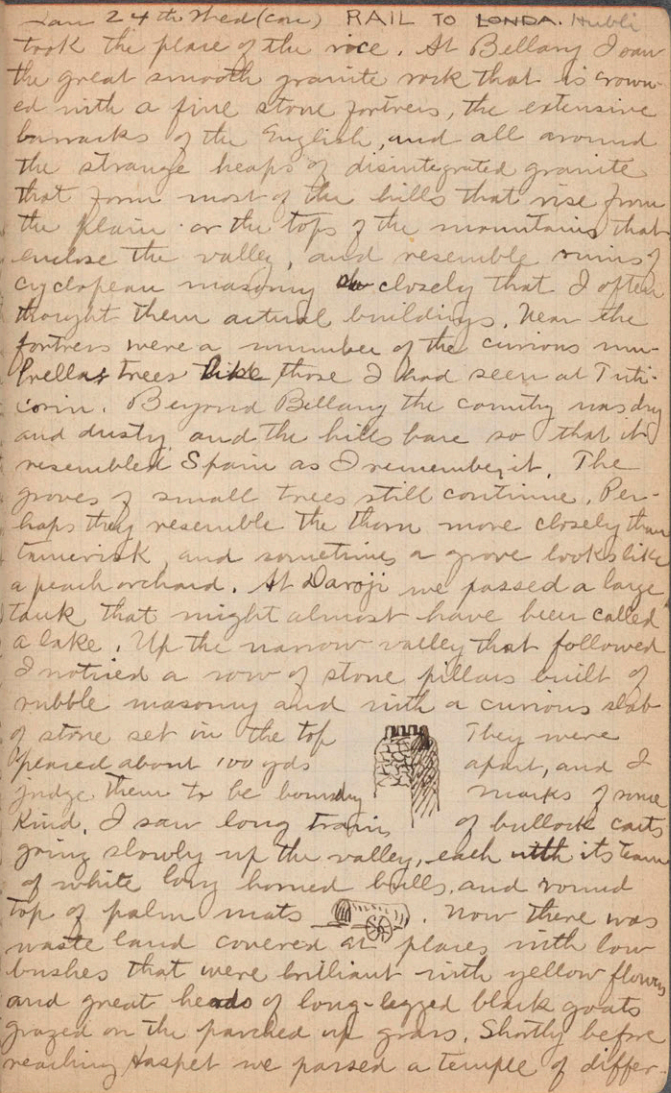 Jan 24th Wed (con) RAIL TO LONDA. Hubli
took the place of the rice. At Bellary I saw
the great smooth granite rock that is crown-
ed with a fine stone fortress, the extensive
barracks of the English, and all around
the strange heaps of disintegrated granite
that form most of the hills that rise from
the plain or the tops of the mountains that
enclose the valley, and resemble ruins of
cyclopean masonry so closely that I often
thought them actual buildings. Near the
fortress were a number of the curious um-
brella trees like those I had seen at Tuti-
corin. Beyond Bellary the country was dry
and dusty and the hills bare so that it
resembled Spain as I remember it. The
groves of small trees still continue. Per-
haps they resemble the thorn more closely than
tamerisk, and sometimes a grove looks like
a peach orchard. At Daroji we passed a large
tank that might almost have been called
a lake. Up the narrow valley that followed
I noticed a row of stone pillars built of
rubble masonry and with a curious slab
of stone set in the top They were
spaced about 100 yds apart, and I
judge them to be boundry marks of some
kind. I saw long trains of bullock carts
going slowly up the valley, each with its team
of white long horned bulls, and round
top of palm mats . Now there was
waste land covered at places with low
bushes that were brilliant with yellow flowers
and great heads of long-legged black goats
grazed on the parched up grass. Shortly before
reaching Haspet we passed a temple of differ-